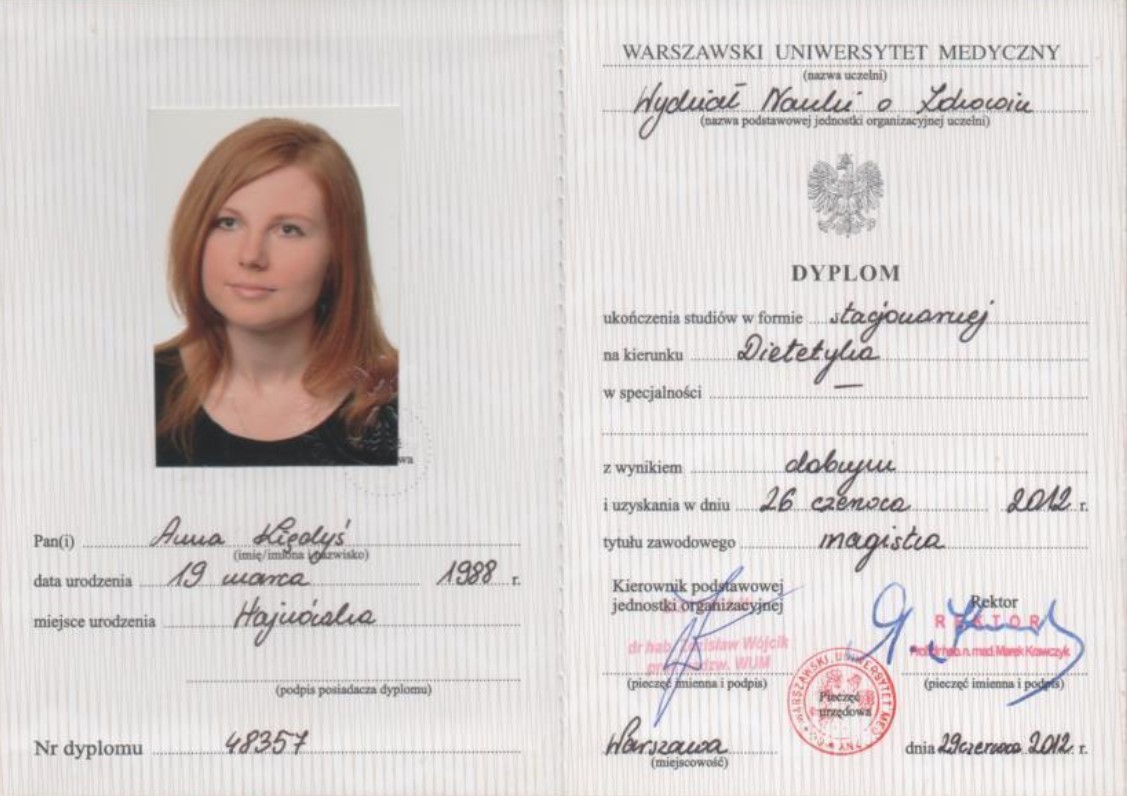 Pan(i) Anna
(imię/imiona i nazwisko)
data urodzenia 19 marca 1988 r.
miejsce urodzenia Hajnówka
(podpis posiadacza dyplomu)
Nr dyplomu 48357
WARSZAWSKI UNIWERSYTET MEDYCZNY
(nazwa uczelni)
Wydział Nauki o Zdrowiu
(nazwa podstawowej jednostki organizacyjnej uczelni)
DYPLOM
ukończenia studiów w formie stacjonarnej
na kierunku Dietetyka
w specjalności —
z wynikiem dobrym
i uzyskania w dniu 26 czerwca 2012 r.
tytułu zawodowego magistra
Kierownik podstawowej
jednostki organizacyjnej
dr hab. Zdzisław Wójcik
WUM
(pieczęć imienna i podpis)
Rektor
REKTOR
Prof. dr hab. n. med. Marek Krawczyk
(pieczęć imienna i podpis)
WARSZAWSKI UNIWERSYTET MEDYCZNY
Pieczęć
urzędowa
Warszawa
(miejscowość)
dnia 29 czerwca 2012 r.